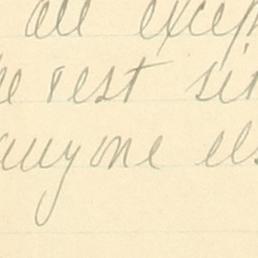 all excep
e rest sit
anyone els